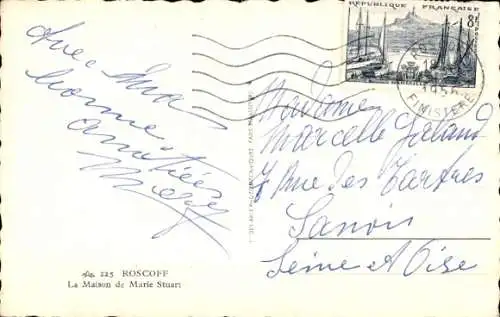 RÉPUBLIQUE FRANÇAISE
8F
1956
FINISTÈRE
Avec ma
bonne
amitiée
Madame
Marcelle Galand
7 Rue des Tartres
Sanois
Seine et Oise
225 ROSCOFF
La Maison de Marie Stuart